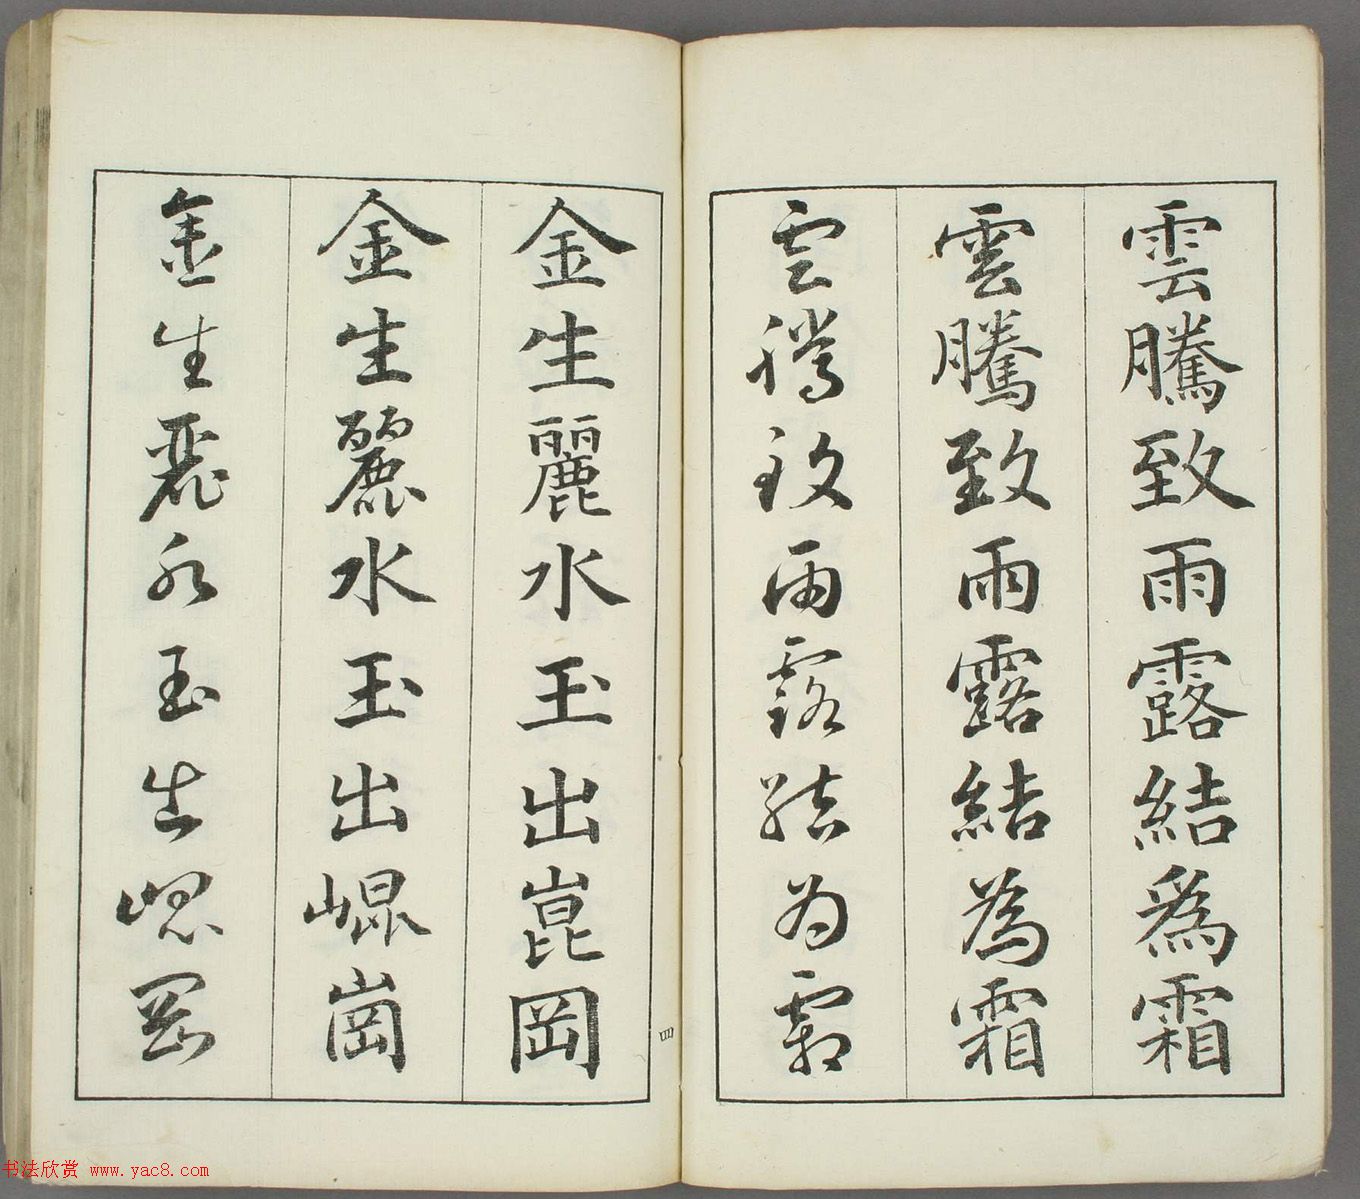 雲騰致雨露結爲霜
雲騰致雨露結為霜
雲騰致雨露結為霜
金生麗水玉出崑岡
金生麗水玉出崐崗
金生麗水玉出崐岡
四
书法欣赏 www.yac8.com